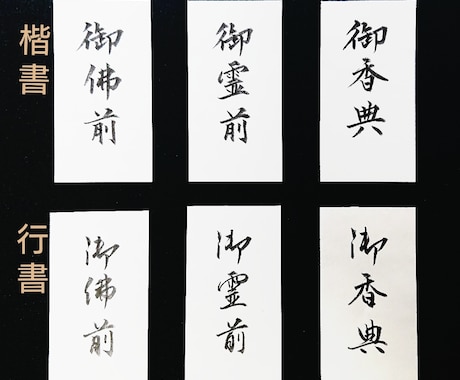 楷書
御佛前
御霊前
御香典
行書
御佛前
御霊前
御香典